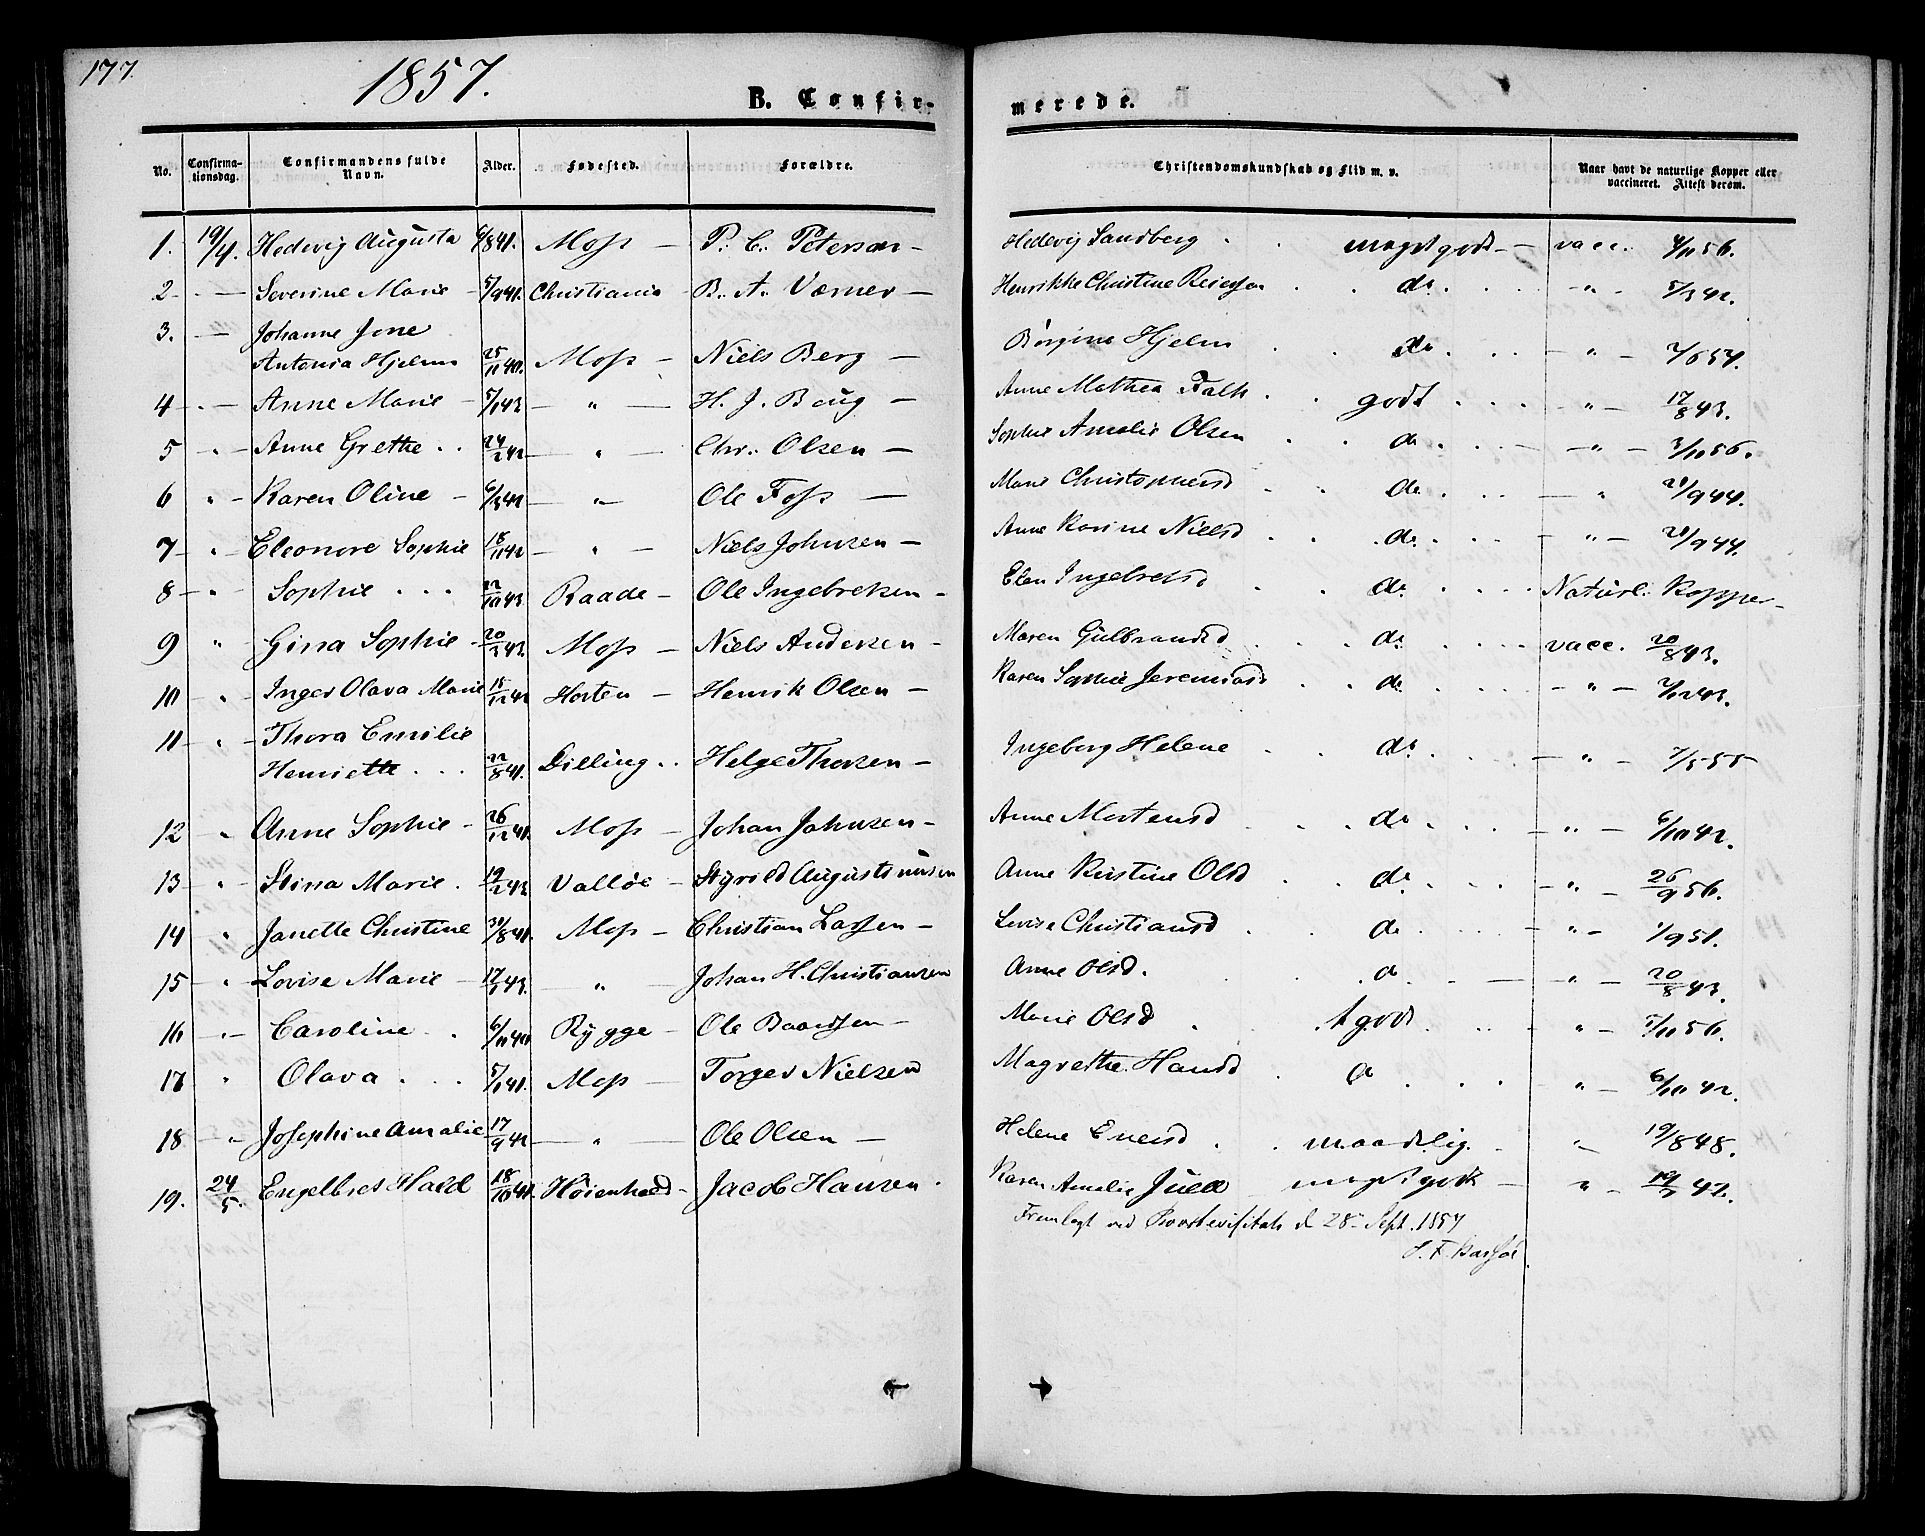 177.
1857.
B. Confir-
merede.
No.
Confirma-
tionsdag.
Confirmandens fulde
Navn.
Alder.
Fødested.
Forældre.
Christendomskundskab og Flid m. v.
Naar havt de naturlige Kopper eller
vaccineret. Attest derom.
1. 19/4. Hedevig Augusta 6/841. Moss — P. C. Petersen — Hedevig Sandberg meget godt — vacc. 4/1156.
2 - Severine Marie - 5/941. Christiania - B. A. Værner — Henrikke Christine d. " 5/342.
3. — Johanne Jene
Antonia Hjelm 25/1140. Moss — Niels Berg — Børgine Hjelm d. — " — 2/657.
4 - Anne Marie - 5/143. — " — H. J. Boug — Anne Mathea Falk godt - " — 17/843.
5 - Anne Grethe 24/242 — " — Chr. Olsen — Sophie Amalie Olsen d. — " — 3/1056.
6 " - Karen Oline - 6/342 — " Ole Foss — Marie Christophersd d. — " 21/944.
7 - " - Eleonore Sophie 18/1142 — " — Niels Johnsen — Anne Karine Nielsd d. — " — 21/944.
8 - " - Sophie 22/1043 Raade - Ole Ingebretsen - Elen Ingebretsd d. Naturl. Kopper-
9 " - Gina Sophie - 20/243. Moss — Niels Andersen - Maren Gulbrandsd d. vacc. 20/843.
10 " - Inger Olava Marie 18/1242 Horten - Henrik Olsen — Karen Sophie Jeremiasd d. - " — 2/1243.
11 - " - Thora Emilie
Henriette 22/841. Dilling Helge Thorsen — Ingeborg Helene d. — " — 7/555
12 - " Anne Sophie - 26/1241. Moss — Johan Johnsen - Anne Mortensd d. — " — 6/1042.
13 - " - Stina Marie. 19/243 Valløe - Styrold Augustinusen Anne Kirstine Olsd d. - " — 26/956.
14 " Janette Christine 31/841. Moss — Christian Larsen — Lovise Christiansd d. - " — 1/951.
15 - " Lovise Marie - 17/143. — " — Johan H. Christiansen Anne Olsd. d — " — 20/843.
16 - " - Caroline 6/1140 Rygge - Ole Baardsen — Marie Olsd t. godt " — 7/1056.
17 " Olava 5/141. Moss — Torger Nielsen Magrethe Hansd d " — 6/1042.
18 - " - Josephine Amalie 17/942 — " — Ole Olsen — Helene Enersd maadelig. " 19/848.
19. 24/5. Engelbret Hald 18/1041. Høienhald - Jacob Hansen. Karen Amalie Juell meget godt " 19/742.
Fremlagt ved Provstevisitats d 28de Sept. 1857